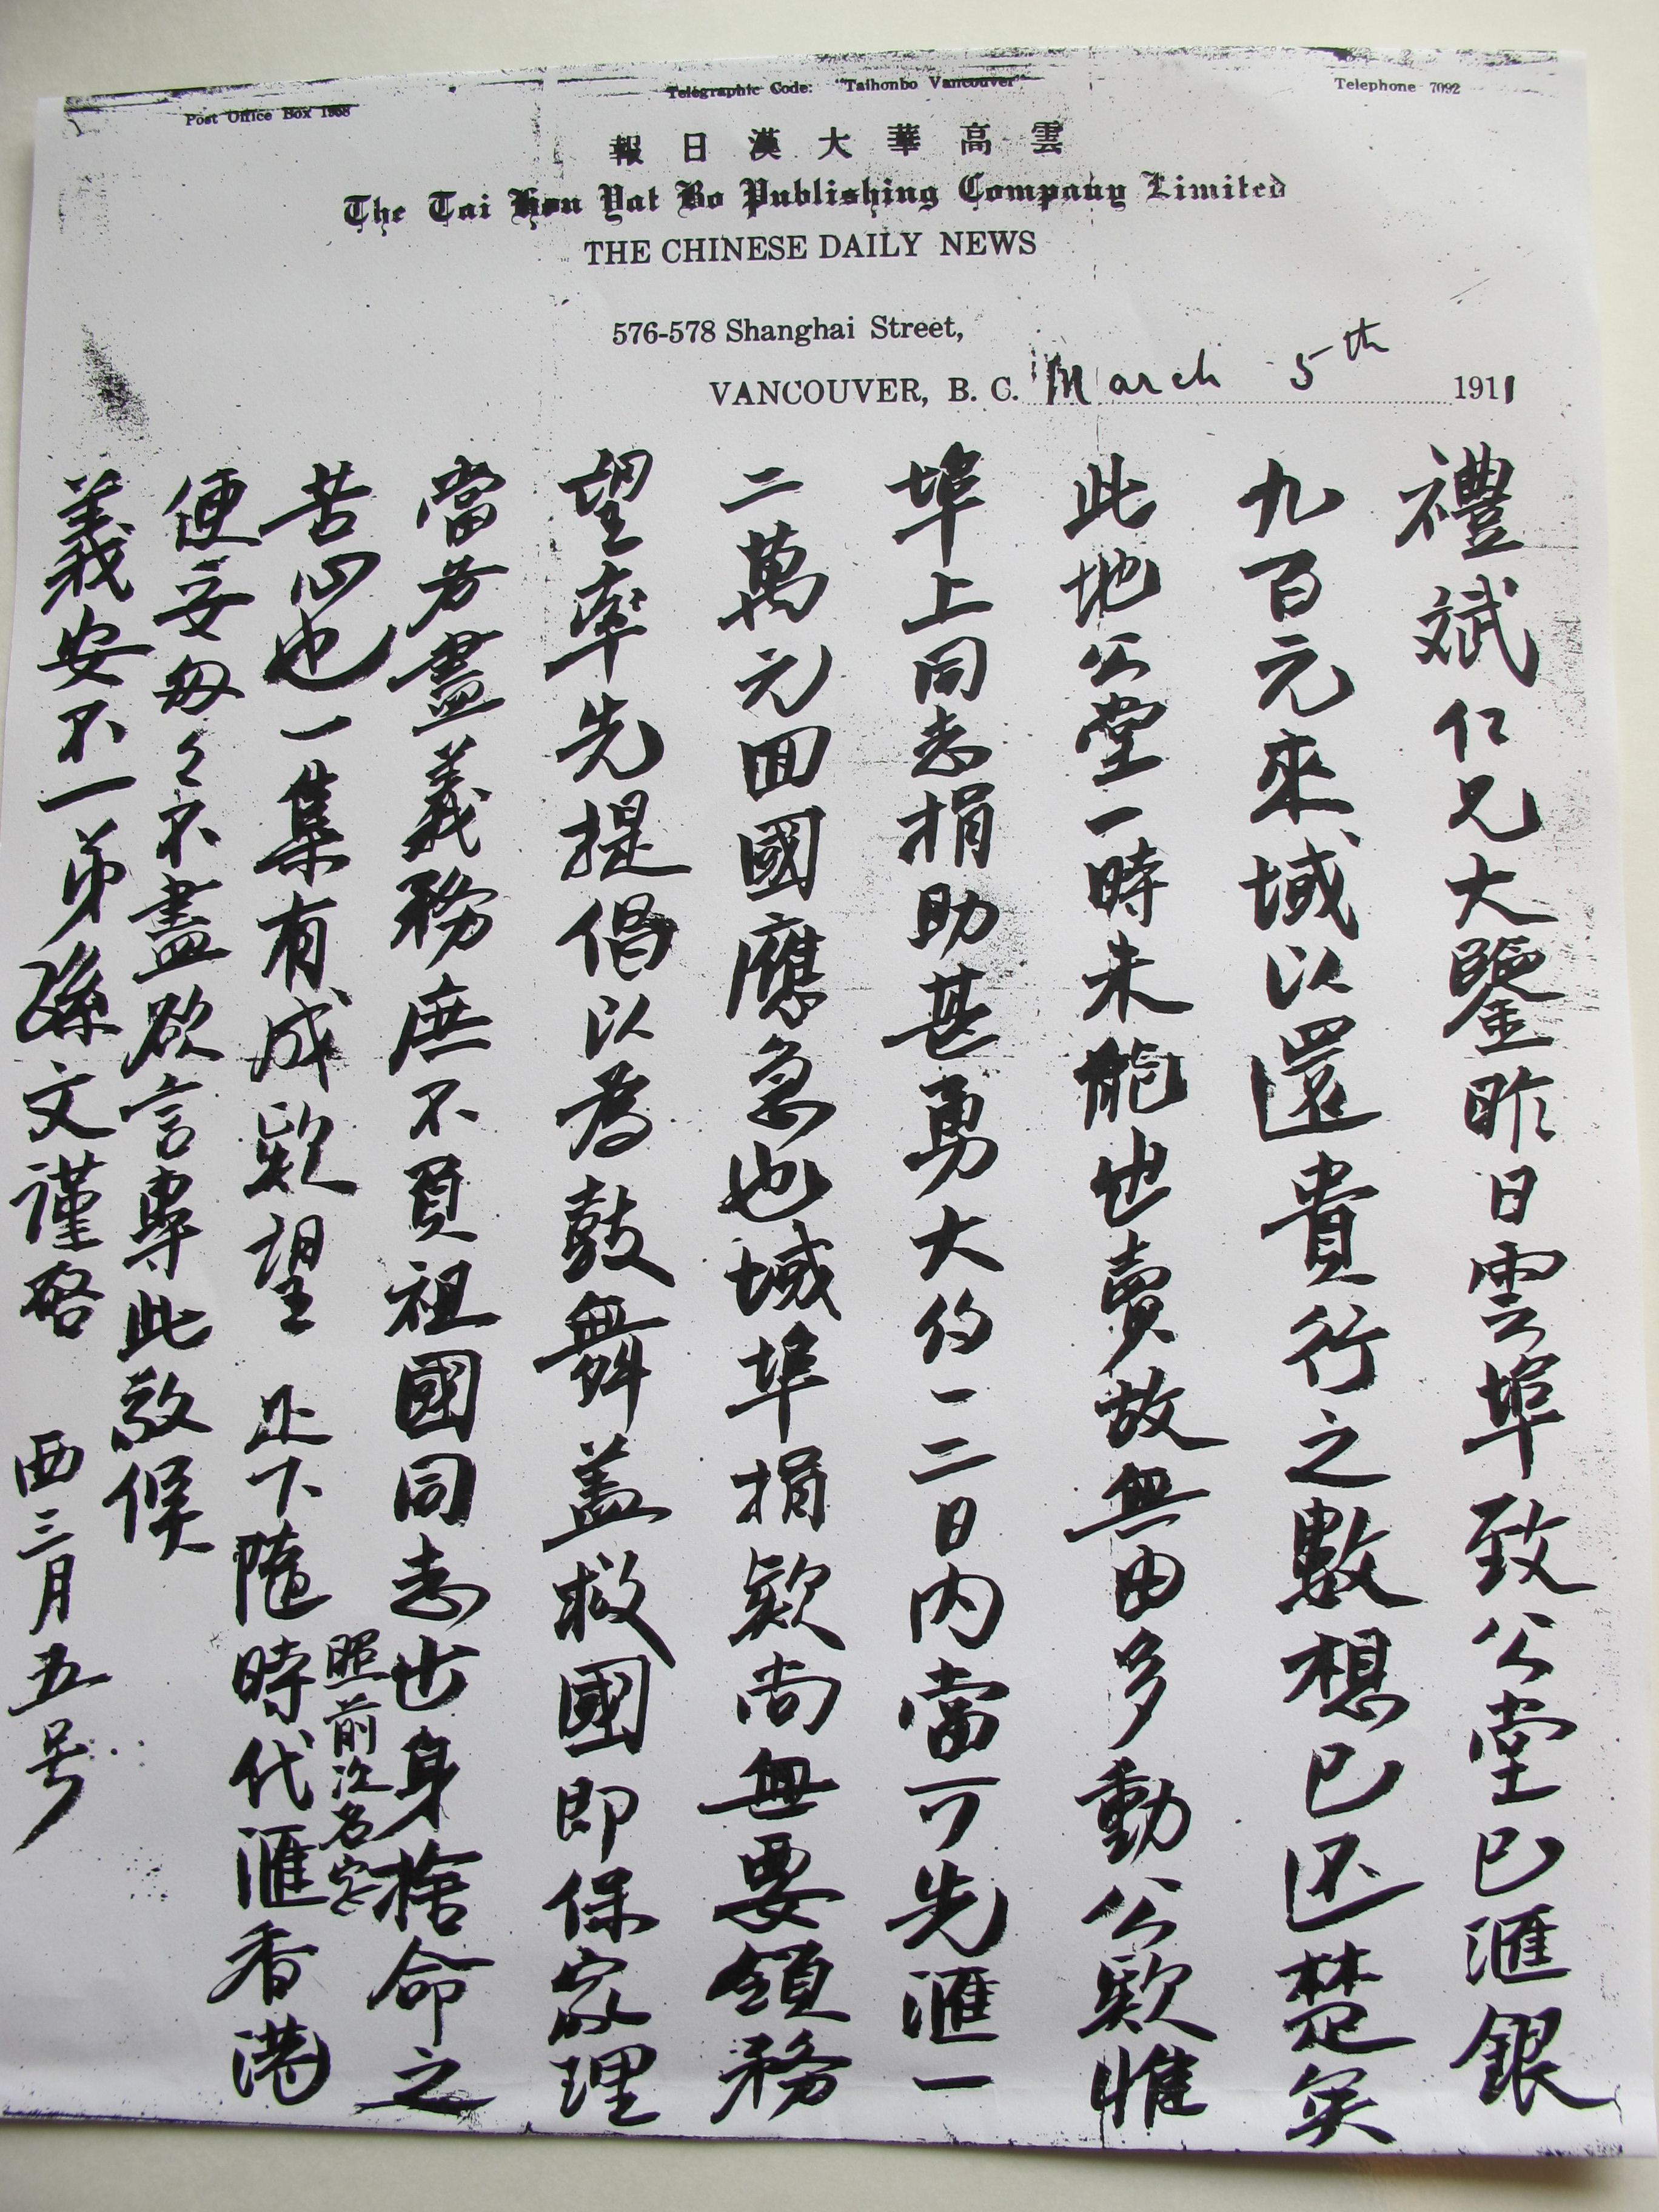 Post Office Box 1968
Telegraphic Code: "Taihonbo Vancouver"
Telephone 7092
雲高華大漢日報
The Tai Hon Yat Bo Publishing Company Limited
THE CHINESE DAILY NEWS
576-578 Shanghai Street,
VANCOUVER, B. C. March 5th 1911
禮斌仁兄大鑒昨日雲埠致公堂已滙銀
九百元來域以還貴行之數想已还楚矣
此地公堂一時未能也賣故無由多動公欵惟
埠上同志捐助甚勇大約一二日内當可先滙一
二萬元回國應急也域埠捐欵尚無要領務
望率先提倡以為鼓舞盖救國即保家理
當勞盡義務庶不負祖國同志出身捨命之
苦心也一集有成欵望足下隨時代滙香港
照前次名字
便妥匆々不盡欲言專此敬候
義安不一弟孫文謹啓 西三月五号